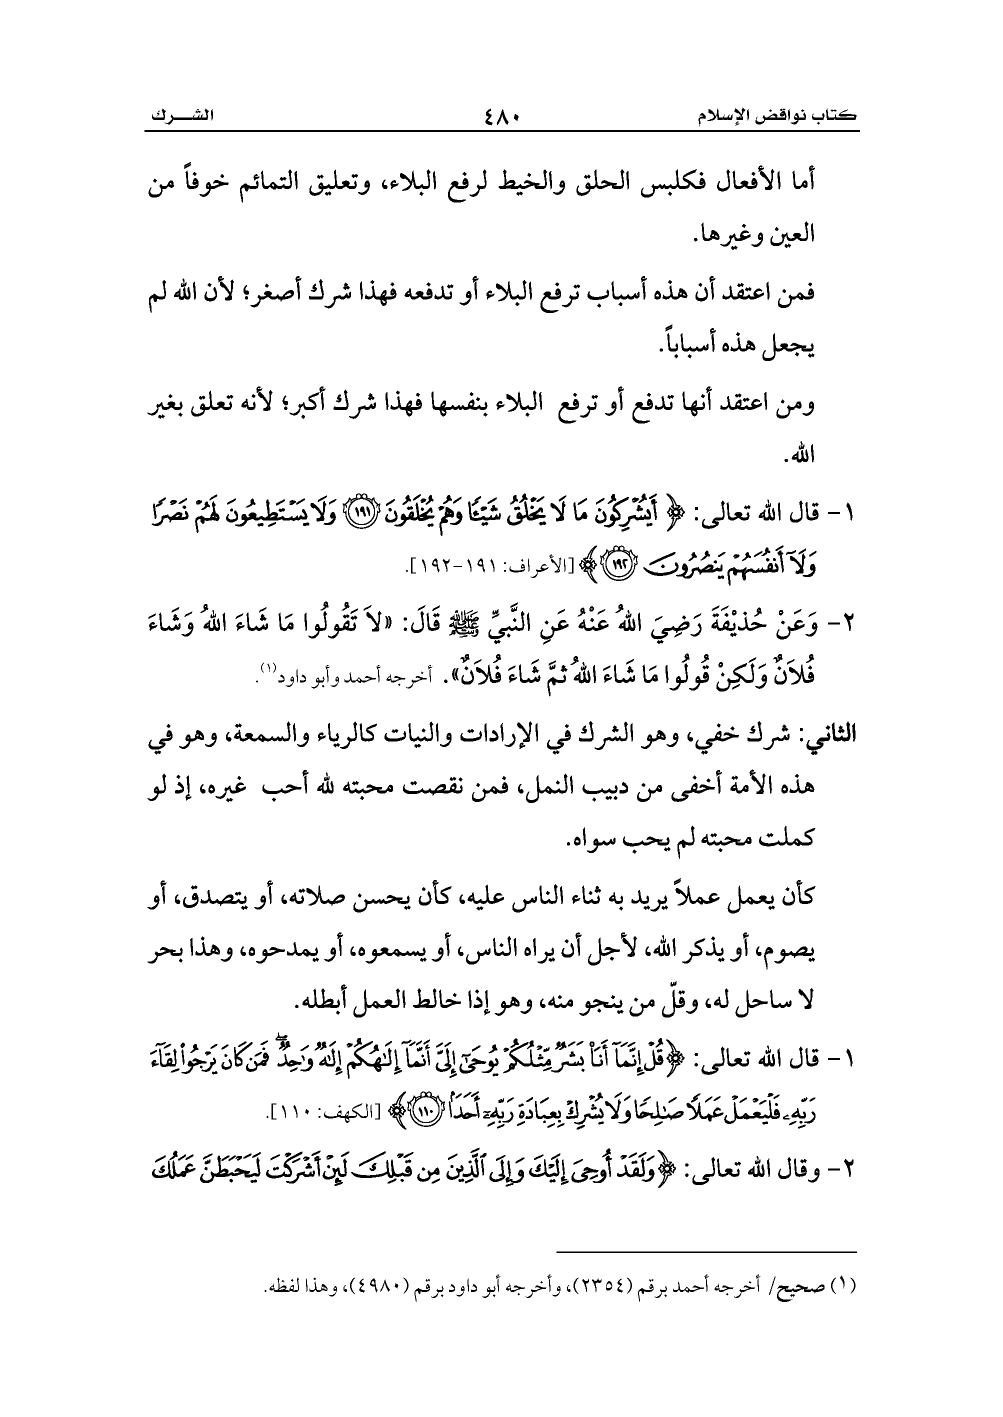 كتاب نواقض الإسلام ٤٨٠ الشــــرك
أما الأفعال فكلبس الحلق والخيط لرفع البلاء، وتعليق التمائم خوفاً من
العين وغيرها.
فمن اعتقد أن هذه أسباب ترفع البلاء أو تدفعه فهذا شرك أصغر؛ لأن الله لم
يجعل هذه أسباباً.
ومن اعتقد أنها تدفع أو ترفع البلاء بنفسها فهذا شرك أكبر؛ لأنه تعلق بغير
الله.
١- قال الله تعالى: ﴿أَيُشْرِكُونَ مَا لَا يَخْلُقُ شَيْـًٔا وَهُمْ يُخْلَقُونَ ﴿١٩١﴾ وَلَا يَسْتَطِيعُونَ لَهُمْ نَصْرًا
وَلَآ أَنفُسَهُمْ يَنصُرُونَ ﴿١٩٢﴾﴾ [الأعراف: ١٩١-١٩٢].
٢- وَعَنْ حُذَيْفَةَ رَضِيَ اللهُ عَنْهُ عَنِ النَّبِيِّ ﷺ قَالَ: «لاَ تَقُولُوا مَا شَاءَ اللهُ وَشَاءَ
فُلاَنٌ وَلَكِنْ قُولُوا مَا شَاءَ اللهُ ثمَّ شَاءَ فُلاَنٌ». أخرجه أحمد وأبو داود(١).
الثاني: شرك خفي، وهو الشرك في الإرادات والنيات كالرياء والسمعة، وهو في
هذه الأمة أخفى من دبيب النمل، فمن نقصت محبته لله أحب غيره، إذ لو
كملت محبته لم يحب سواه.
كأن يعمل عملاً يريد به ثناء الناس عليه، كأن يحسن صلاته، أو يتصدق، أو
يصوم، أو يذكر الله، لأجل أن يراه الناس، أو يسمعوه، أو يمدحوه، وهذا بحر
لا ساحل له، وقلّ من ينجو منه، وهو إذا خالط العمل أبطله.
١- قال الله تعالى: ﴿قُلْ إِنَّمَآ أَنَا۠ بَشَرٌ مِّثْلُكُمْ يُوحَىٰٓ إِلَىَّ أَنَّمَآ إِلَـٰهُكُمْ إِلَـٰهٌ وَٰحِدٌ ۖ فَمَن كَانَ يَرْجُوا۟ لِقَآءَ
رَبِّهِۦ فَلْيَعْمَلْ عَمَلًا صَـٰلِحًا وَلَا يُشْرِكْ بِعِبَادَةِ رَبِّهِۦٓ أَحَدًۢا ﴿١١٠﴾﴾ [الكهف: ١١٠].
٢- وقال الله تعالى: ﴿وَلَقَدْ أُوحِىَ إِلَيْكَ وَإِلَى ٱلَّذِينَ مِن قَبْلِكَ لَئِنْ أَشْرَكْتَ لَيَحْبَطَنَّ عَمَلُكَ
(١) صحيح/ أخرجه أحمد برقم (٢٣٥٤)، وأخرجه أبو داود برقم (٤٩٨٠)، وهذا لفظه.